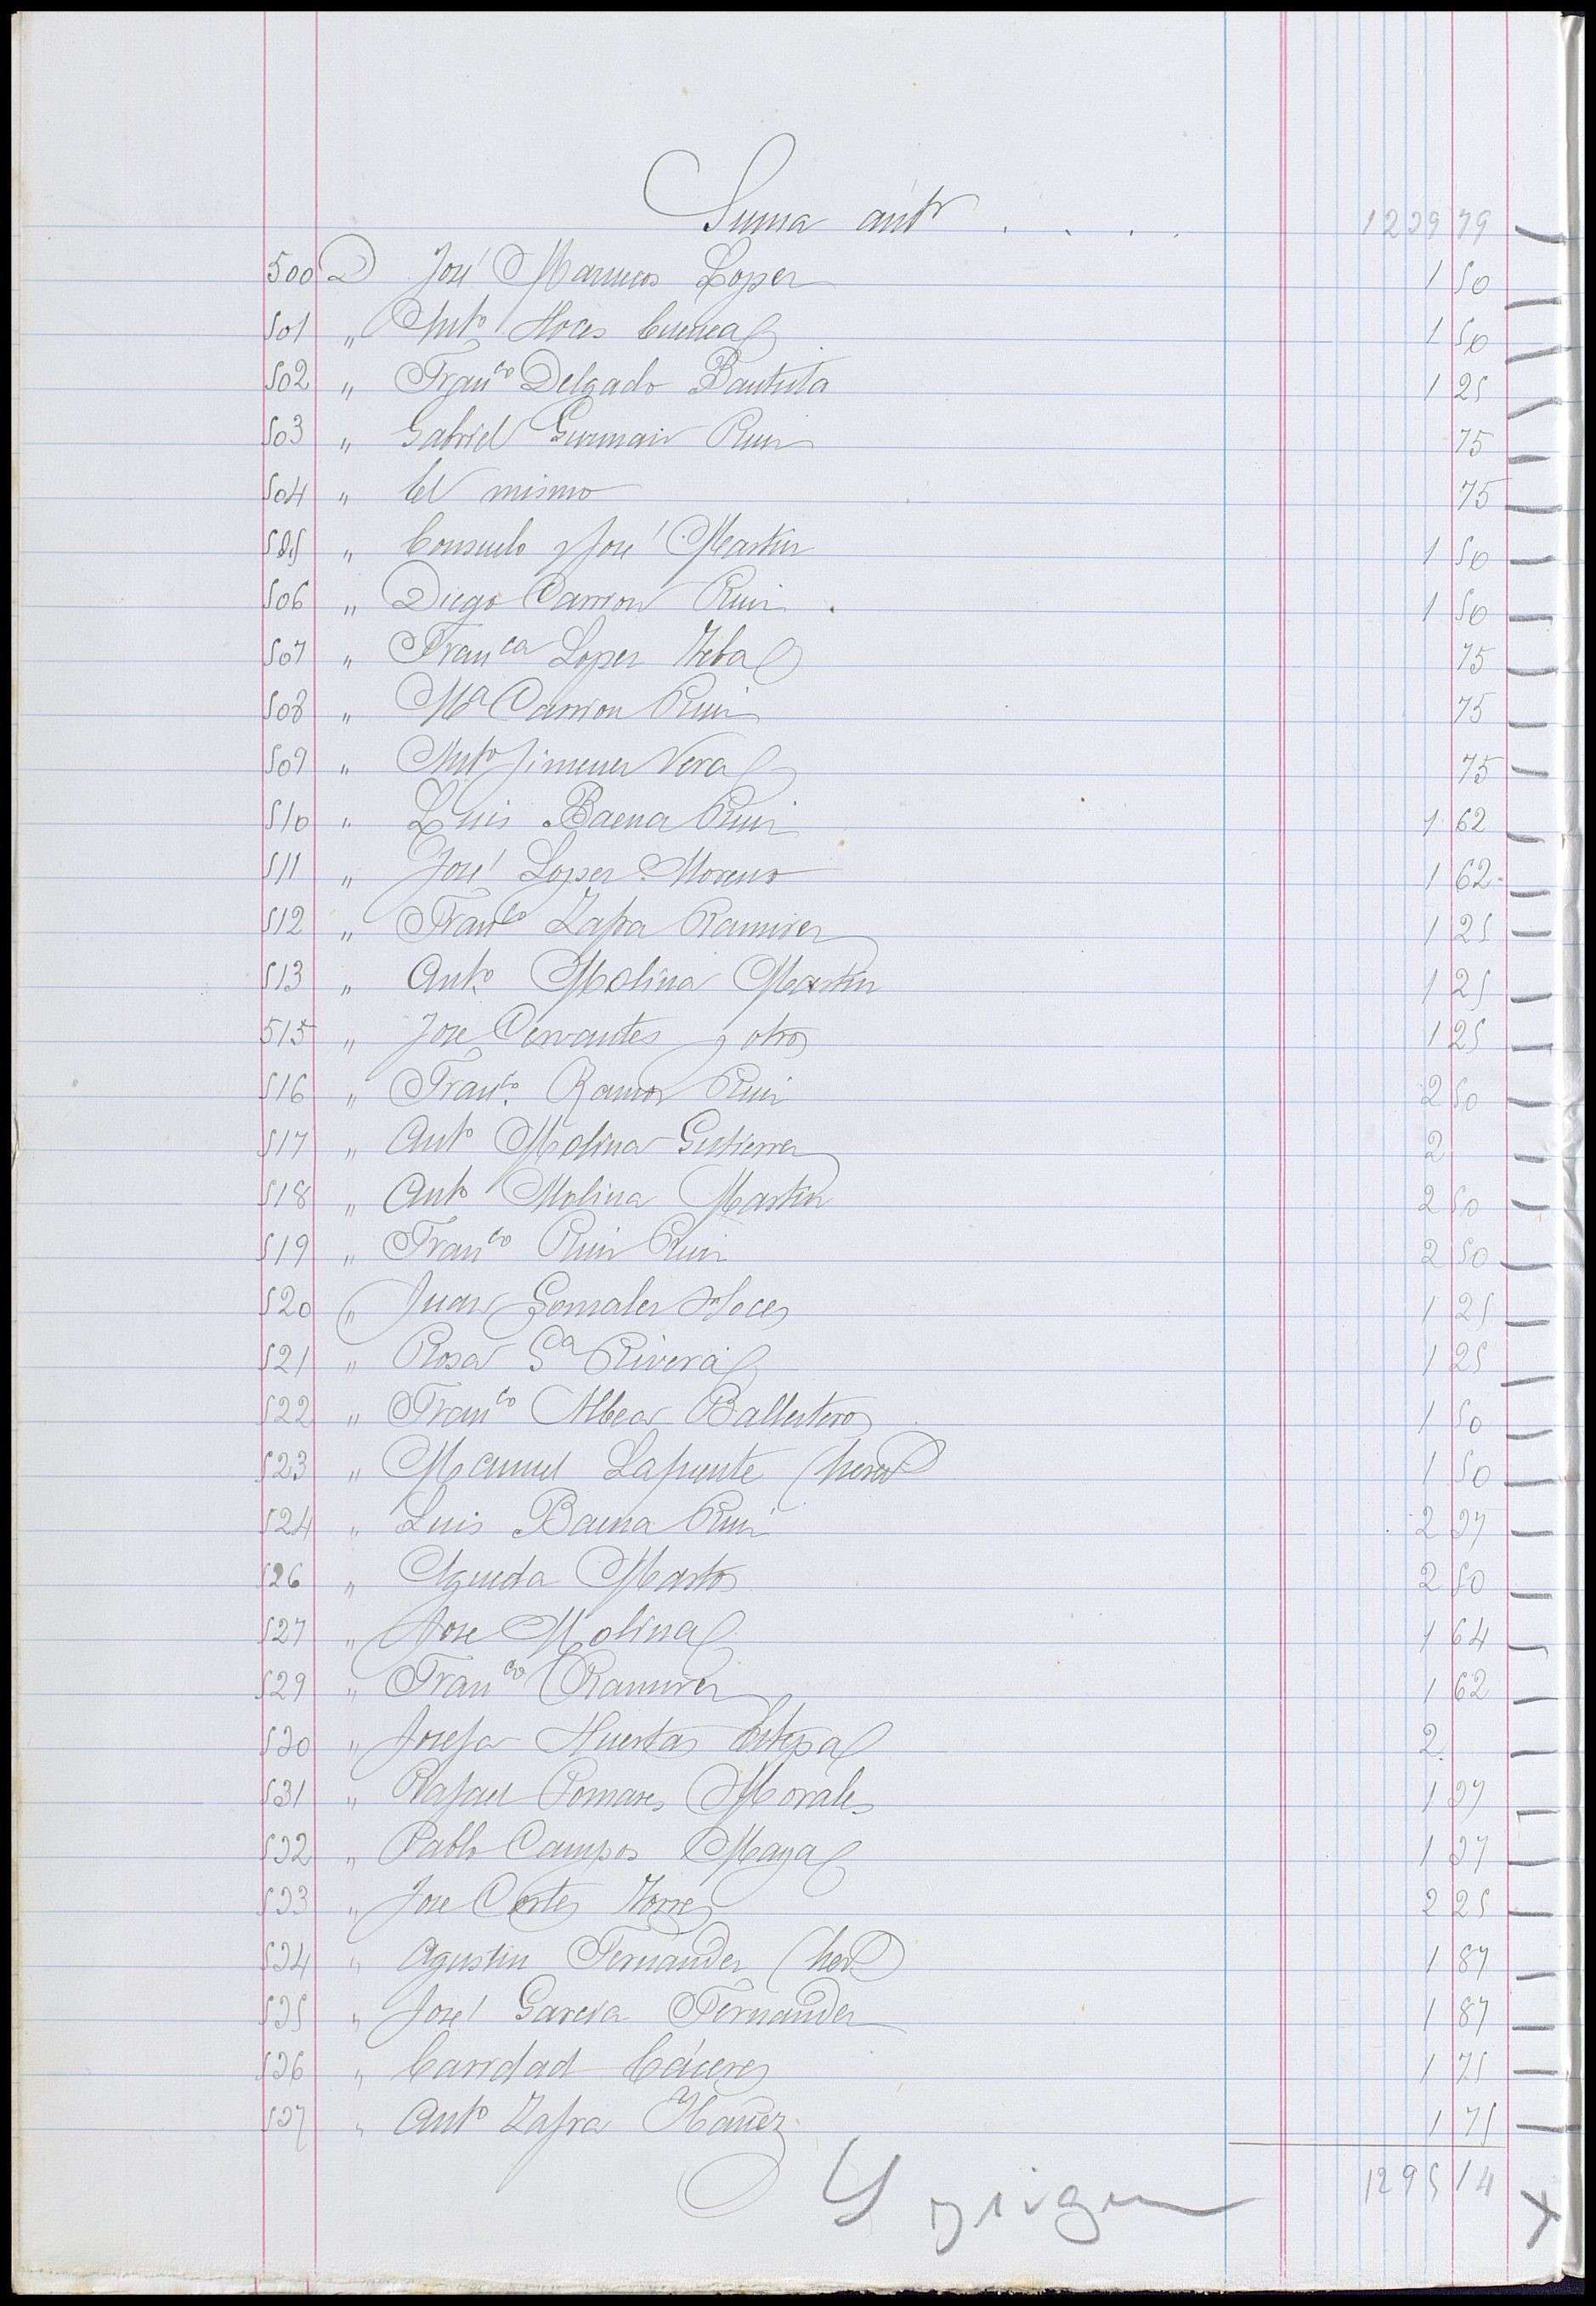 Suma antr . . . . 1239 79
500 D José Marruecos Lopez 1 50
501 " Antº Hoces Cuenca 1 50
502 " Franco Delgado Bautista 1 25
503 " Gabriel Guzman Ruiz 75
504 " El mismo 75
505 " Consuelo y José Martin 1 50
506 " Diego Carrion Ruiz 1 50
507 " Franca Lopez Teba 75
508 " Mª Carrion Ruiz 75
509 " Antº Jimenez Vera 75
510 " Luis Baena Ruiz 1 62
511 " José Lopez Moreno 1 62
512 " Franco Zafra Ramirez 1 25
513 " Antº Molina Martin 1 25
515 " Jose Cervantes y otros 1 25
516 " Franco Ramos Ruiz 2 50
517 " Antº Molina Gutierrez 2
518 " Antº Molina Martin 2 50
519 " Franco Ruiz Ruiz 2 50
520 " Juan Gonzalez Hoces 1 25
521 " Rosa Gª Rivera 1 25
522 " Franco Albea Ballesteros 1 50
523 " Manuel Lafuente (hered 1 50
524 " Luis Baena Ruiz 2 37
526 " Agueda Martos 2 50
527 " Jose Molina 1 64
529 " Franco Ramirez 1 62
530 " Josefa Huertas Estepa 2
531 " Rafael Pomares Morales 1 37
532 " Pablo Campos Maya 1 37
533 " Jose Cortes Torres 2 25
534 " Agustin Fernandez (herd 1 87
535 " José Garcia Fernandez 1 87
536 " Caridad Cáceres 1 75
537 " Antº Zafra Ibañez 1 75
1295 14